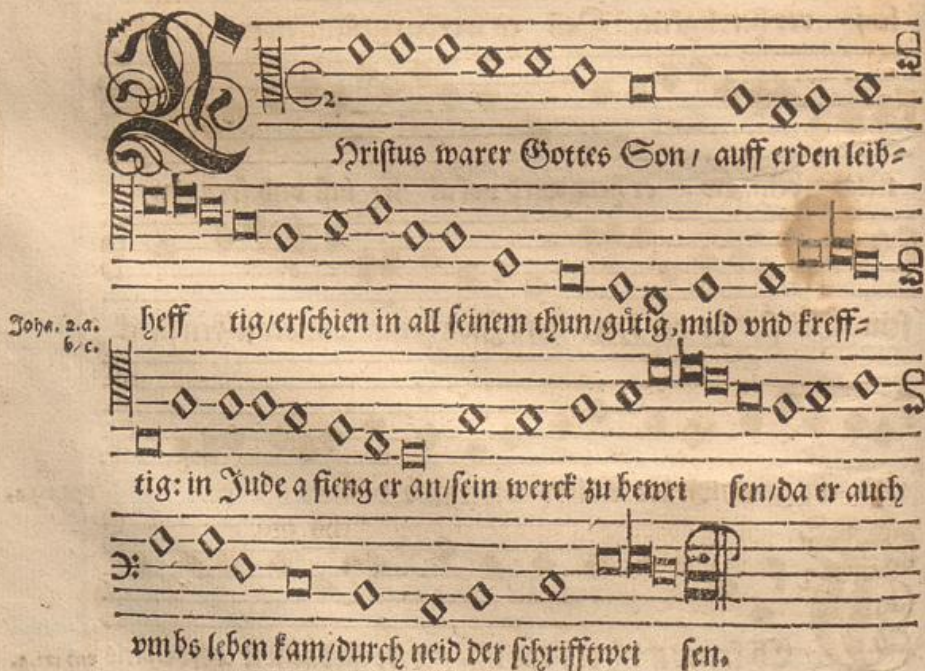 CHristus warer Gottes Son / auff erden leib=
Joha. 2.a.
b/c.
hefftig/erschien in all seinem thun/gütig, mild vnd kreff=
tig: in Jude a fieng er an/sein werck zu bewei sen/da er auch
vmbs leben kam/durch neid der schrifftwei sen.